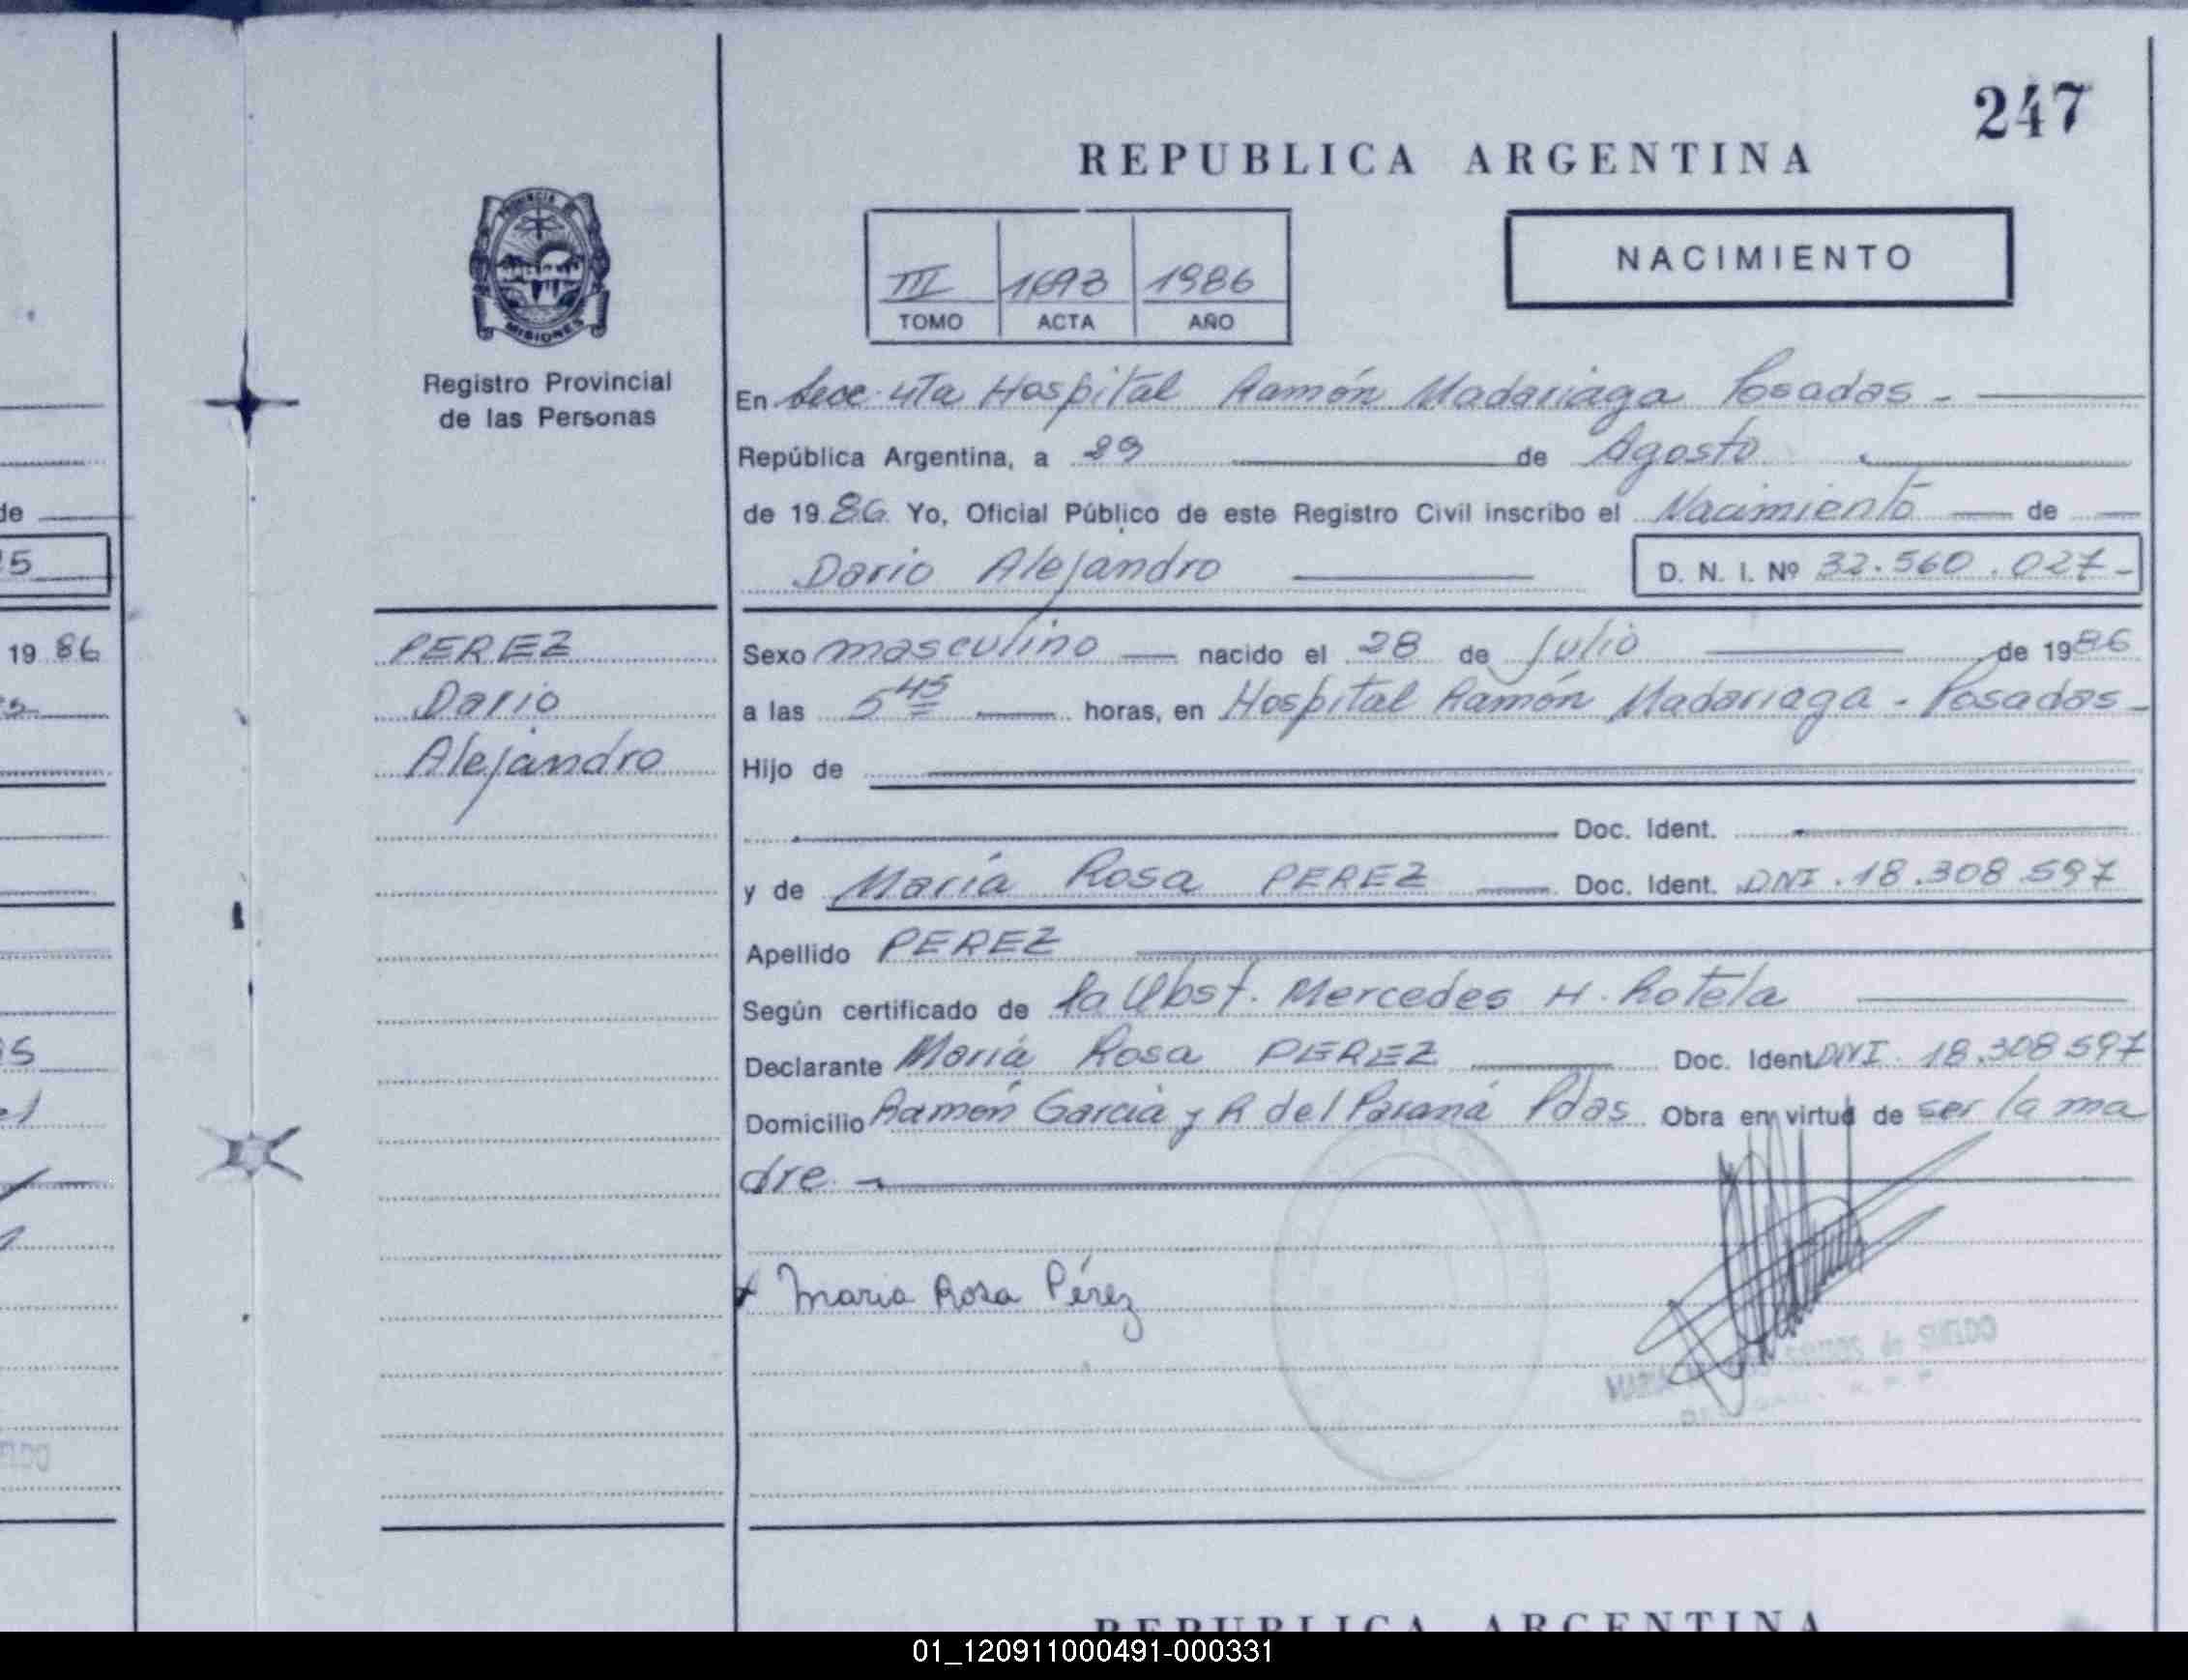 247
REPUBLICA ARGENTINA
PROVINCIA DE
MISIONES
Registro Provincial
de las Personas
III 1693 1986
TOMO ACTA AÑO
NACIMIENTO
En Secc. 4ta Hospital Ramón Madariaga Posadas -
República Argentina, a 29 de Agosto
de 1986 Yo, Oficial Público de este Registro Civil inscribo el Nacimiento de
Dario Alejandro D. N. I. Nº 32.560.027-
PEREZ
Dario
Alejandro
Sexo masculino nacido el 28 de Julio de 1986
a las 5 45 horas, en Hospital Ramón Madariaga - Posadas -
Hijo de
Doc. Ident.
y de María Rosa PEREZ Doc. Ident. DNI. 18.308.597
Apellido PEREZ
Según certificado de la Obst. Mercedes H. Rotela
Declarante María Rosa PEREZ Doc. Ident. DNI. 18.308.597
Domicilio Ramón García y R del Paraná Pdas Obra en virtud de ser la ma
dre
Maria Rosa Pérez
MARIA de SUELDO
de
5
19 86
REPUBLICA ARGENTINA
01_120911000491-000331